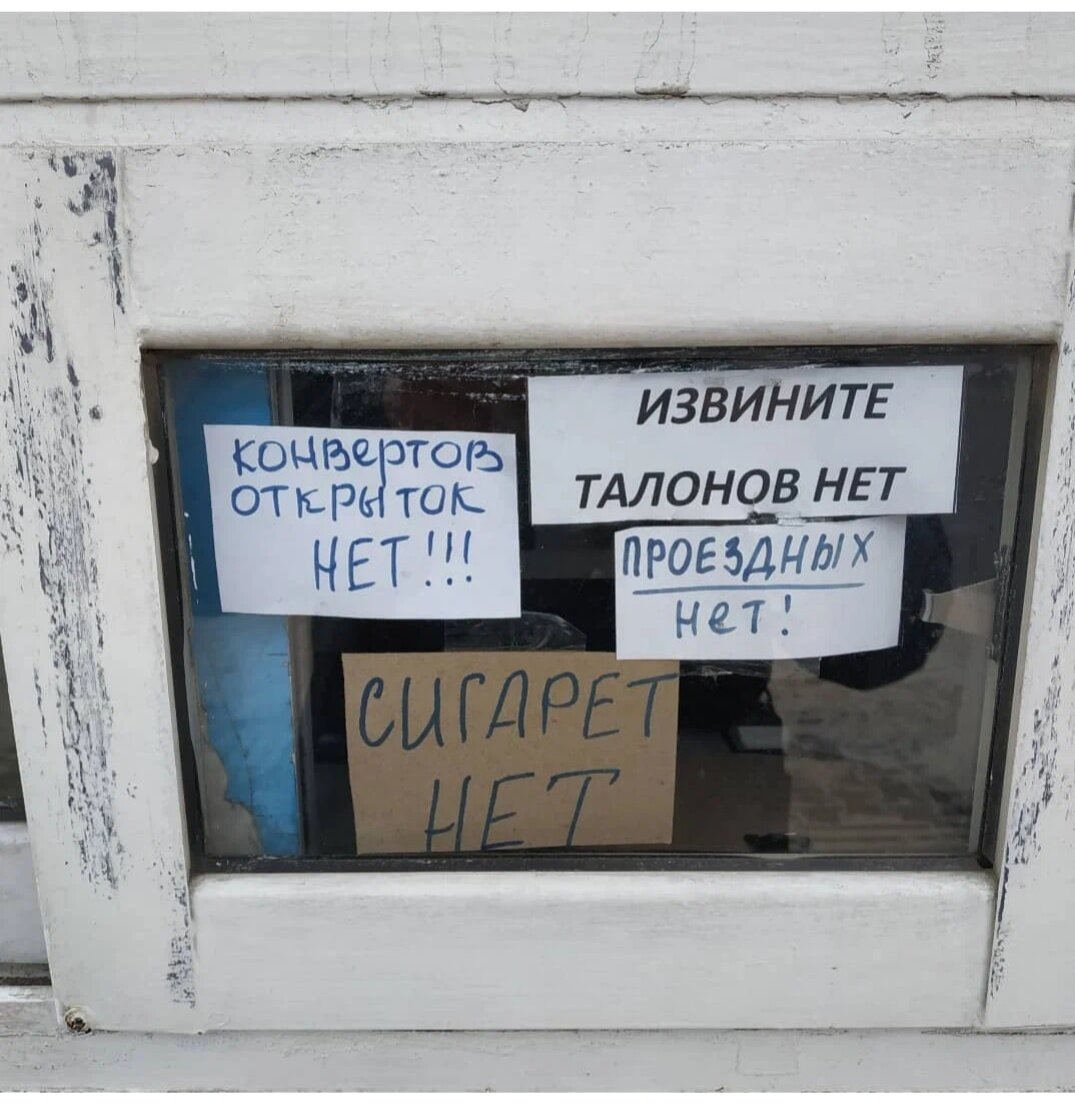 КОНВЕРТОВ
ОТКРЫТОК
НЕТ!!!
ИЗВИНИТЕ
ТАЛОНОВ НЕТ
ПРОЕЗДНЫХ
НЕТ!
СИГАРЕТ
НЕТ